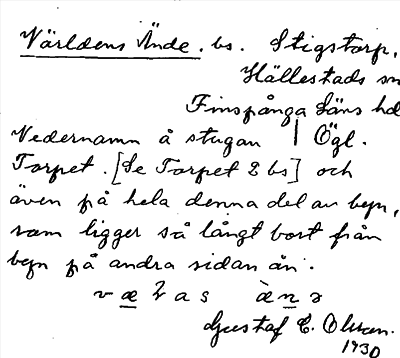 Världens Ände. bs. Stigstorp,
Hällestads sn
Finspånga läns hd
Vedernamn å stugan | Ögl.
Torpet. [Se Torpet 2 bs] och
även på hela denna del av byn,
som ligger så långt bort från
byn på andra sidan ån.
Gustaf E. Olsson.
1930